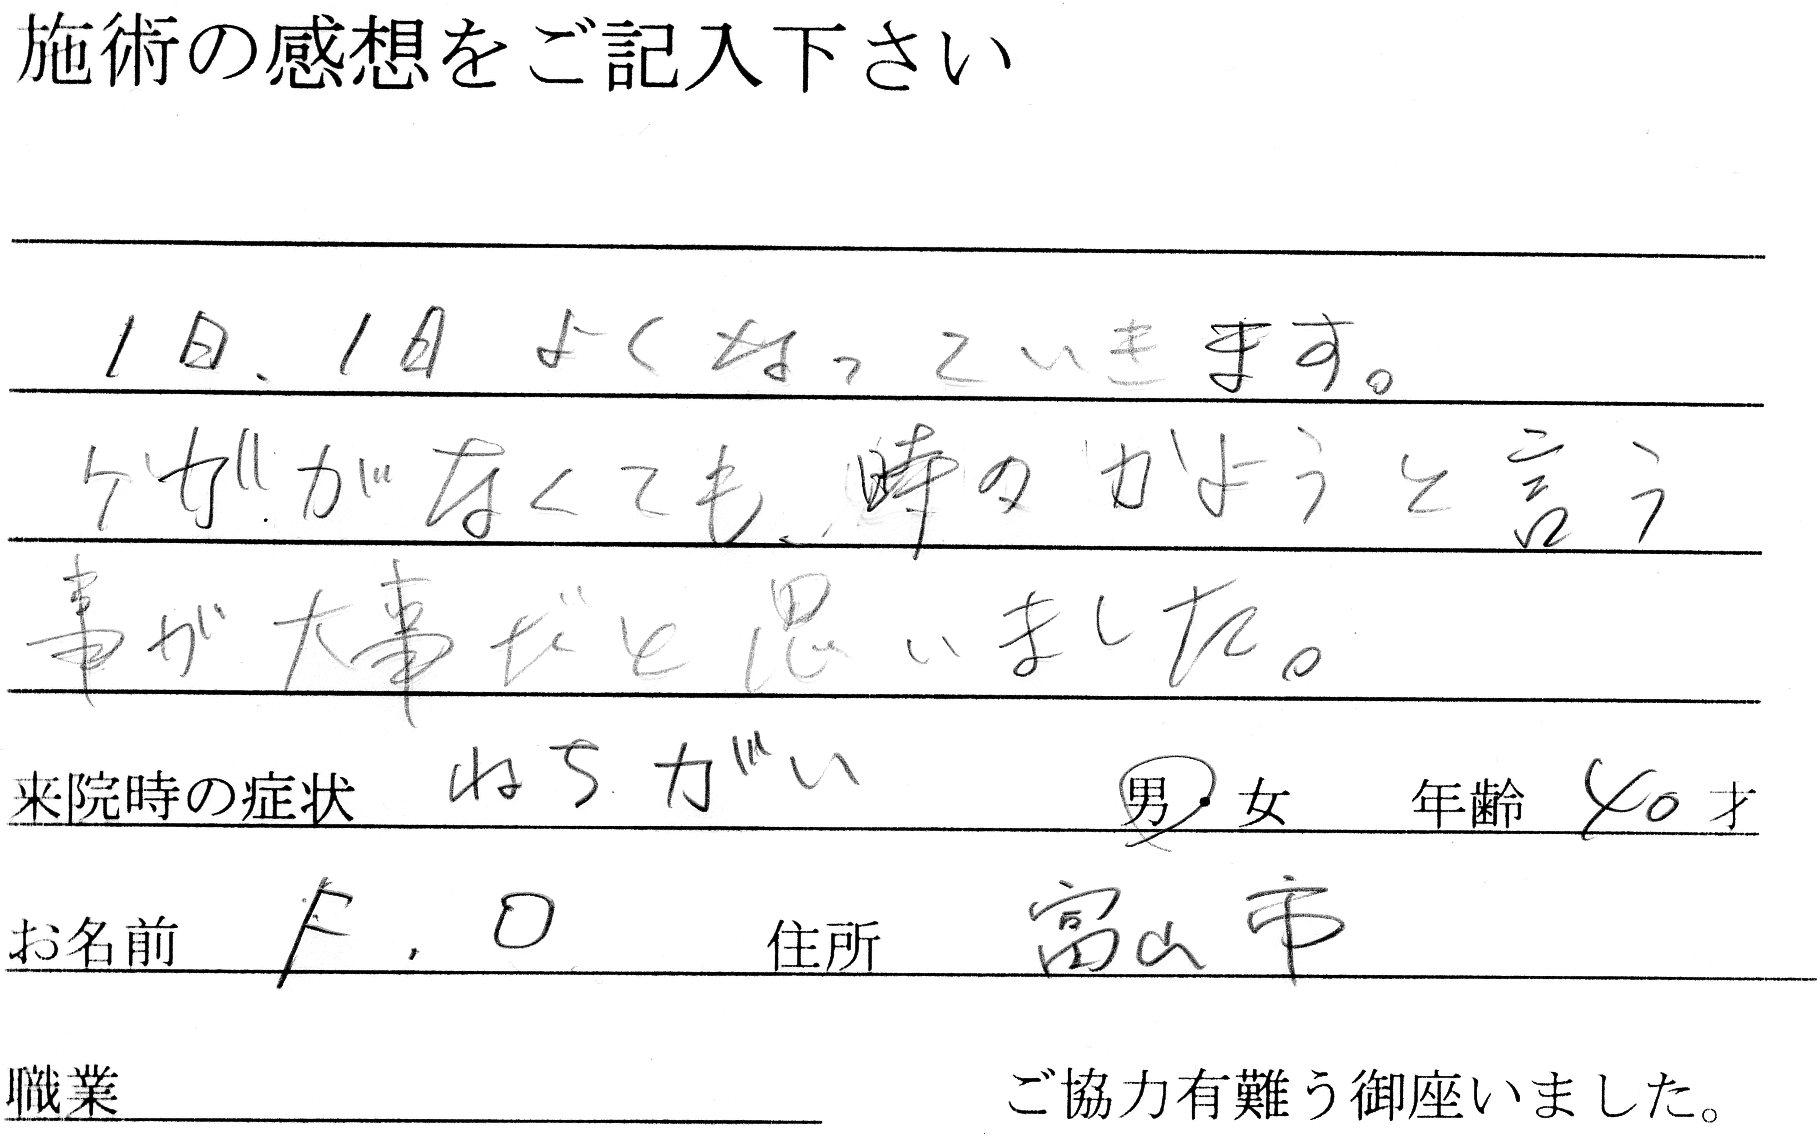 施術の感想をご記入下さい
1日、1日 よくなっていきます。
ケガがなくても、時々 かようと言う
事が大事だと思いました。
来院時の症状 ねちがい 男・女 年齢 40才
お名前 F.O 住所 富山市
職業 ご協力有難う御座いました。